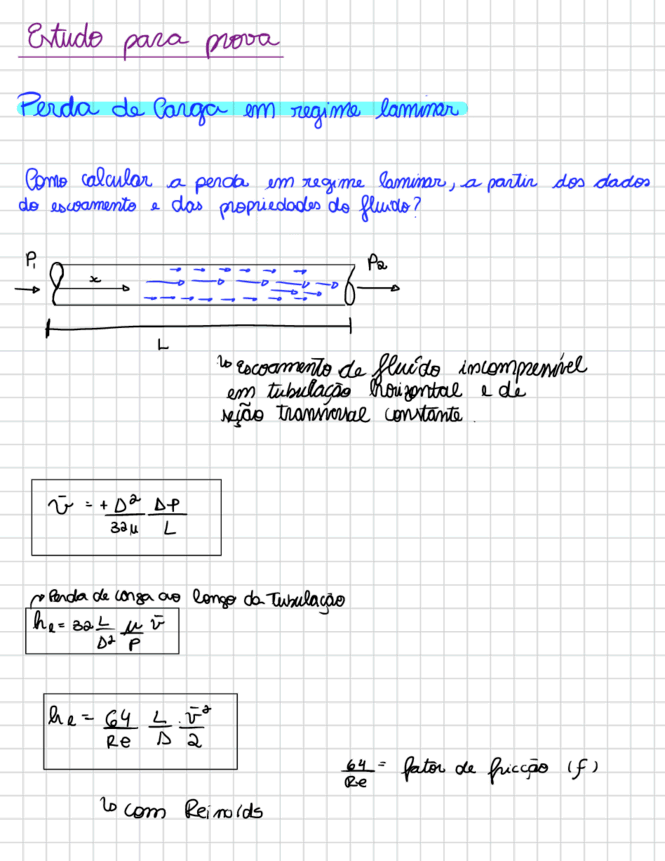 Estudo para prova
Perda de Carga em regime laminar
Como calcular a perda em regime laminar, a partir dos dados
do escoamento e das propriedades do fluido?
P₁
x
P₂
L
↳ escoamento de fluído incompressível
em tubulação horizontal e de
seção transversal constante.
v̄ = + D²/32μ ΔP/L
→ Perda de carga ao longo da Tubulação
hₑ = 32 L/D² μ/ρ v̄
hₑ = 64/Re L/D · v̄²/2
64/Re = fator de fricção (f)
↳ com Reinolds